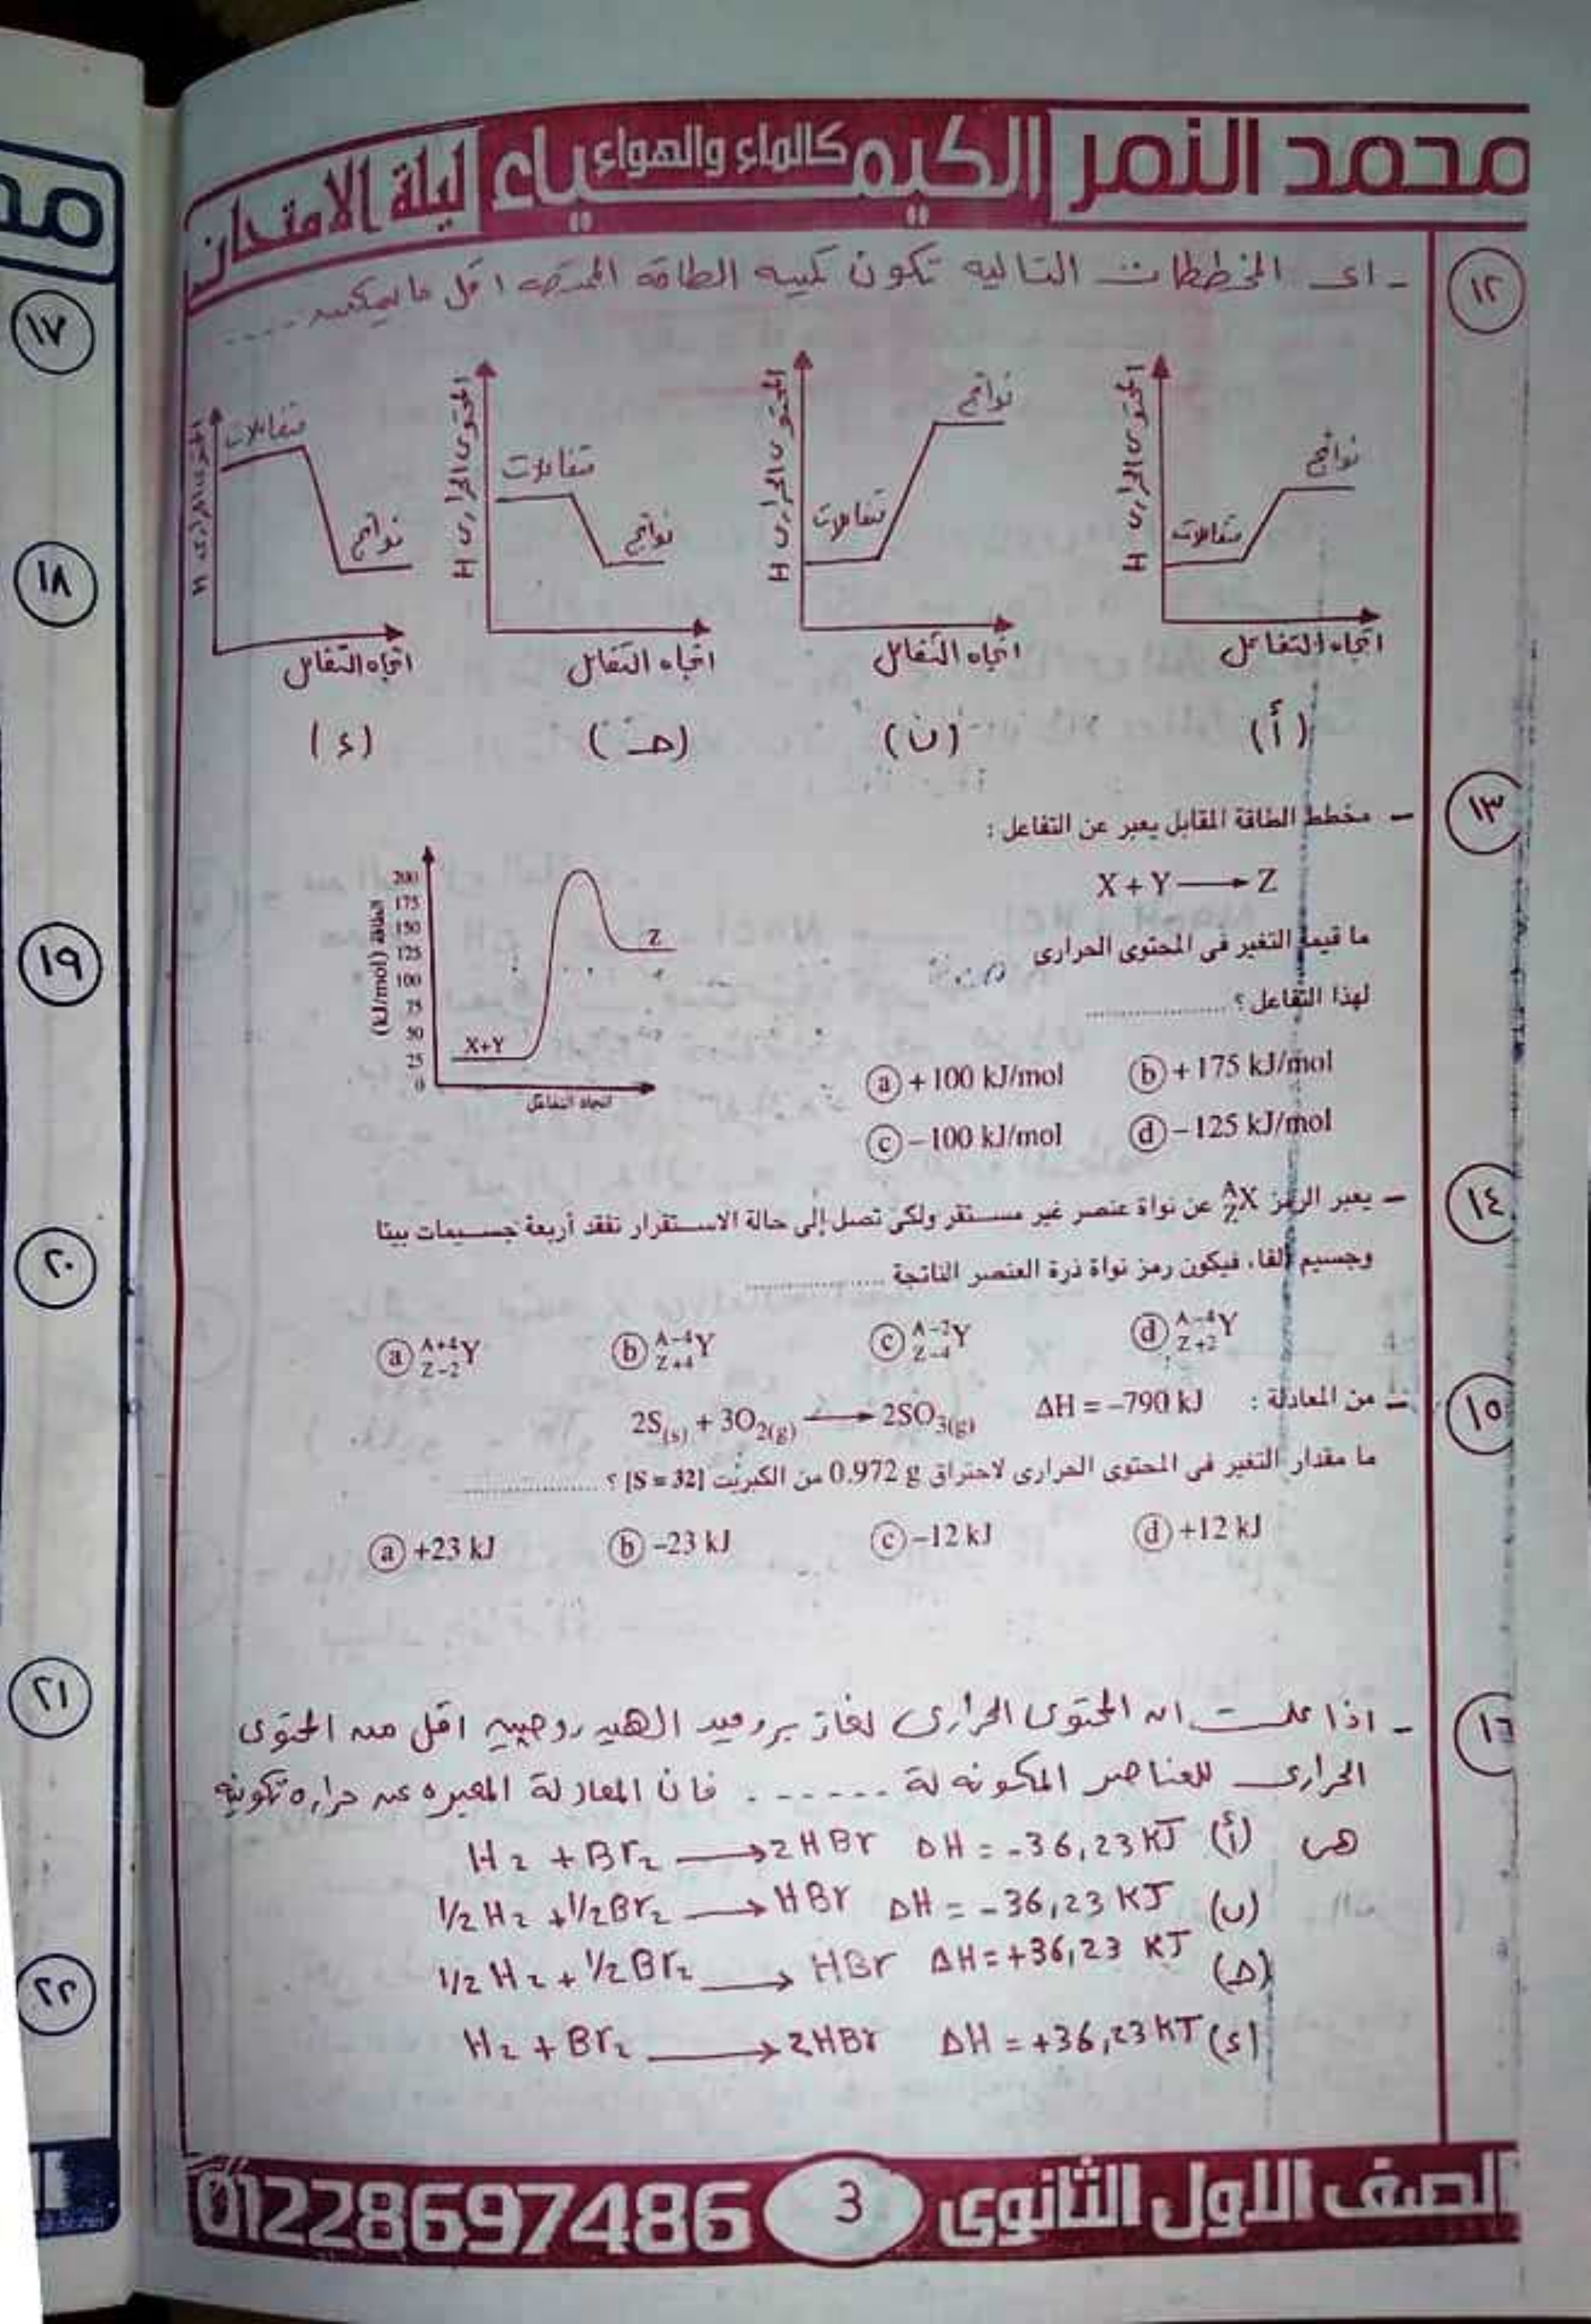 محمد النمر الكيمياء كالماء والهواء ليلة الامتحان
١٢
- اى المخططات التاليه تكون كميه الطاقه الممتصه اقل ما يمكن ....
المحتوى الحرارى H
متفاعلات
نواتج
اتجاه التفاعل
(أ)
المحتوى الحرارى H
متفاعلات
نواتج
اتجاه التفاعل
(ب)
المحتوى الحرارى H
متفاعلات
نواتج
اتجاه التفاعل
(جـ)
المحتوى الحرارى H
متفاعلات
نواتج
اتجاه التفاعل
(د)
١٣
– مخطط الطاقة المقابل يعبر عن التفاعل :
X + Y ⟶ Z
ما قيمة التغير فى المحتوى الحرارى
لهذا التفاعل ؟ ....................
الطاقة (kJ/mol)
200
175
150
125
100
75
50
25
0
X+Y
Z
اتجاه التفاعل
ⓐ +100 kJ/mol ⓑ +175 kJ/mol
ⓒ –100 kJ/mol ⓓ –125 kJ/mol
١٤
– يعبر الرمز ᴬ_ZX عن نواة عنصر غير مستقر ولكى تصل إلى حالة الاستقرار تفقد أربعة جسيمات بيتا
وجسيم ألفا، فيكون رمز نواة ذرة العنصر الناتجة ....................
ⓐ A+4 Z–2 Y ⓑ A–4 Z+4 Y ⓒ A–2 Z–4 Y ⓓ A–4 Z+2 Y
١٥
– من المعادلة : 2S(s) + 3O2(g) ⟶ 2SO3(g) ΔH = –790 kJ
ما مقدار التغير فى المحتوى الحرارى لاحتراق 0.972 g من الكبريت [S = 32] ؟ ....................
ⓐ +23 kJ ⓑ –23 kJ ⓒ –12 kJ ⓓ +12 kJ
١٦
- اذا علمت ان المحتوى الحرارى لغاز بروميد الهيدروجين اقل من المحتوى
الحرارى للعناصر المكونه لة ...... فان المعادلة المعبره عن حراره تكوينه
هى (أ) H2 + Br2 ⟶ 2HBr ΔH = -36,23 KJ
(ب) 1/2 H2 + 1/2 Br2 ⟶ HBr ΔH = -36,23 KJ
(جـ) 1/2 H2 + 1/2 Br2 ⟶ HBr ΔH = +36,23 KJ
(د) H2 + Br2 ⟶ 2HBr ΔH = +36,23 KJ
الصف الاول الثانوى 3 01228697486
١٧
١٨
١٩
٢٠
٢١
٢٢